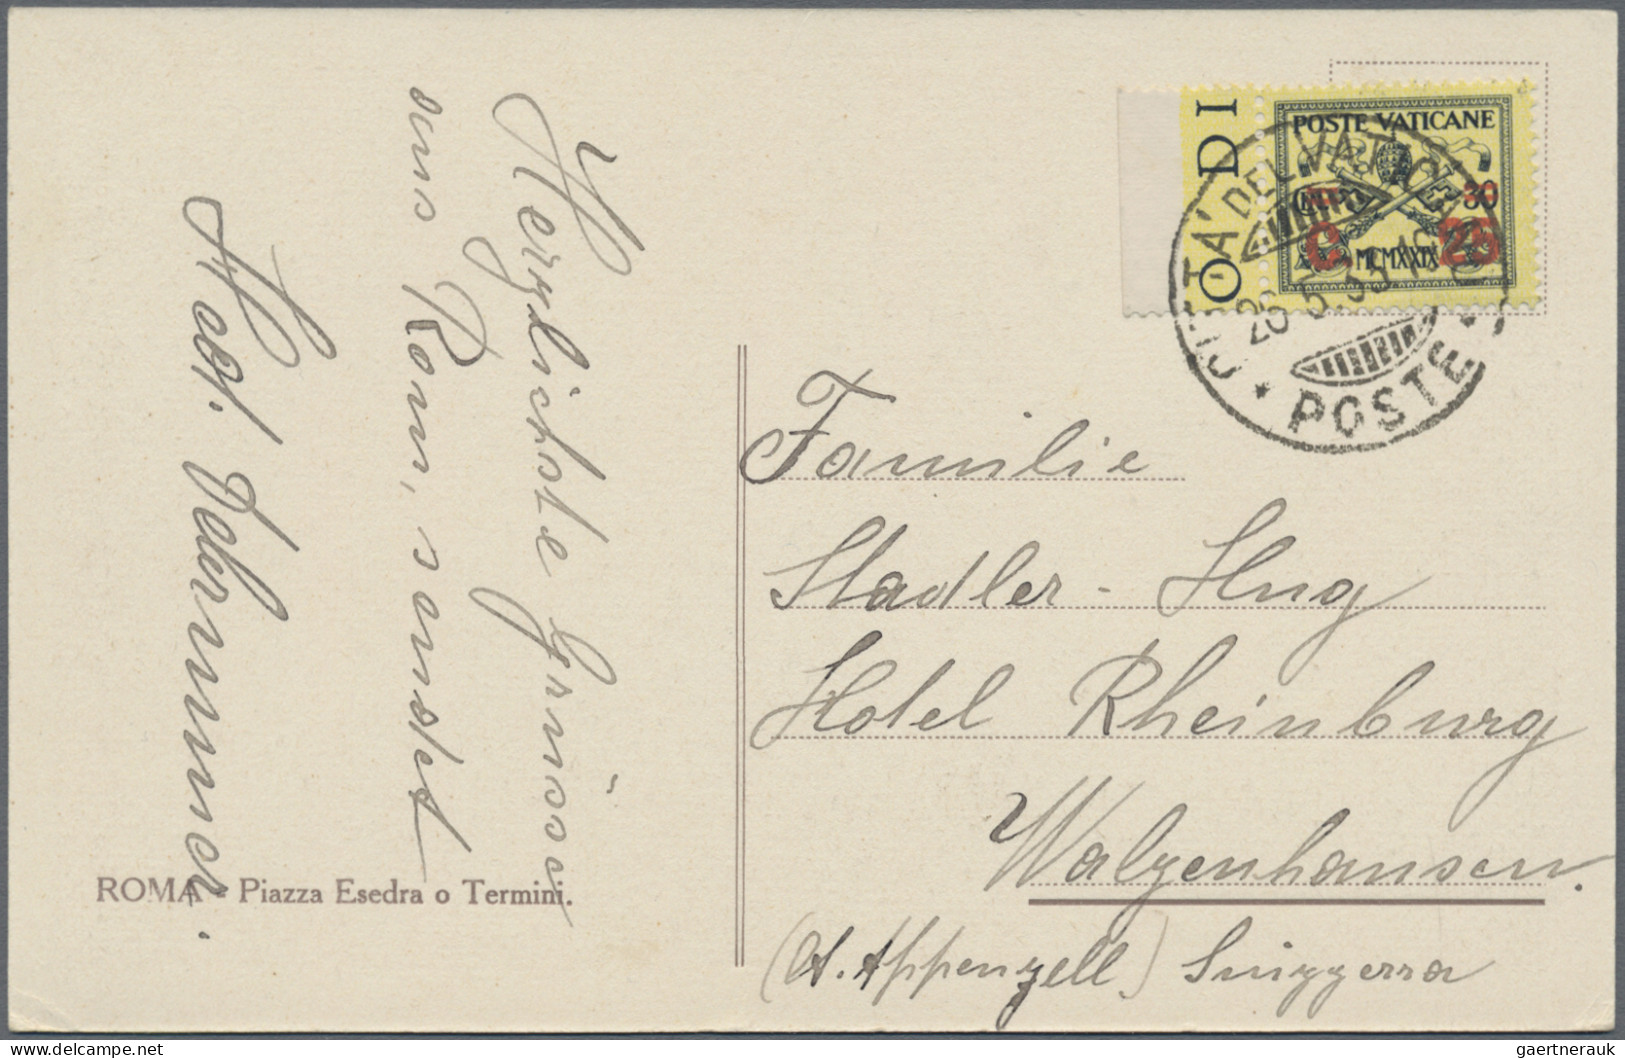 Herzlichste Grüsse
aus Rom, sendet
ROMA - Piazza Esedra o Termini.
O DI
POSTE VATICANE
30
C 25
MCMXXIX
CITTÀ DEL VATICANO
POSTE
Familie
Stadler - Hug
Hotel Rheinburg
Walzenhausen.
(A. Appenzell) Suizzera
delcampe.net
gaertnerauk